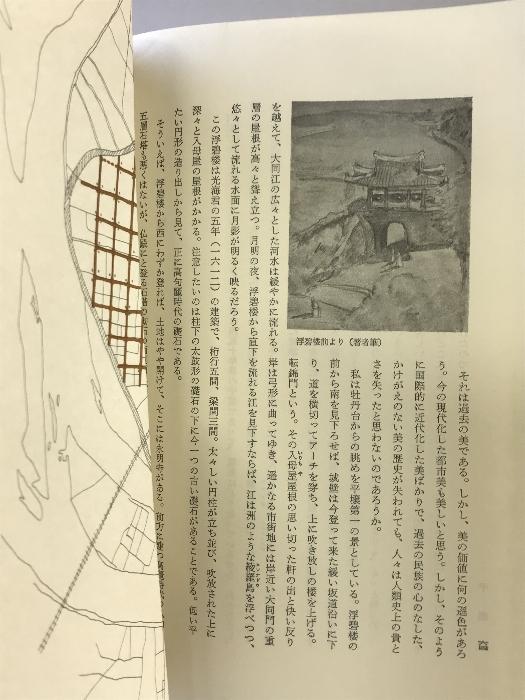 それは過去の美である。しかし、美の価値に何の遜色があろ
う。今の現代化した都市美も美しいと思う。しかし、そのよう
に国際的に近代化した美ばかりで、過去の民族の心のなした、
かけがえのない美の歴史が失われても、人々は人類史上の貴と
さを失ったと思わないのであろうか。
私は牡丹台からの眺めを平壌第一の景としている。浮碧楼の
前から南を見下ろせば、城壁は今登って来た緩い坂道沿いに下
り、道を横切ってアーチを穿ち、上に吹き放しの楼を上げる。
転錦門という。その入母屋屋根の思い切った軒の出と快い反り
いりもや
浮碧楼前より（著者筆）
は弓形に曲ってゆき、遥かなる市街地には岸近い大同門の重
を越えて、大同江の広々とした河水は緩やかに流れる。岸
層の屋根が高々と聳え立つ。月明の夜、浮碧楼から直下を流れる江を見下すならば、江は洲のような綾羅島を浮べつつ、
悠々として流れる水面に月影が明るく映るだろう。
この浮碧楼は光海君の五年（一六一二）の建築で、桁行五間、梁間三間。太々しい円柱が立ち並び、吹放された上に
深々と入母屋の屋根がかかる。注意したいのは柱下の太鼓形の礎石の下に今一つの古い礎石があることである。低い平
たい円形の造り出しから見て、正に高句麗時代の礎石である。
そういえば、浮碧楼から西にわずか登れば、土地はやや開けて、そこには永明寺がある。
五層石塔も悪くはないが、